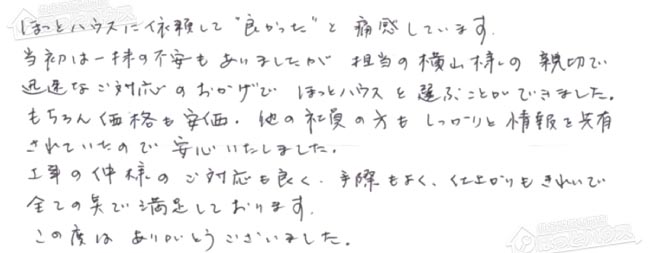 ほっとハウスに依頼して"良かった"と痛感しています.
当初は一抹の不安もありましたが 担当の横山様の親切で
迅速なご対応のおかげで ほっとハウスを選ぶことができました.
もちろん価格も安価. 他の社員の方もしっかりと情報を共有
されていたので安心いたしました.
工事の仲様のご対応も良く. 手際もよく、仕上がりもきれいで
全ての点で満足しております.
この度はありがとうございました.